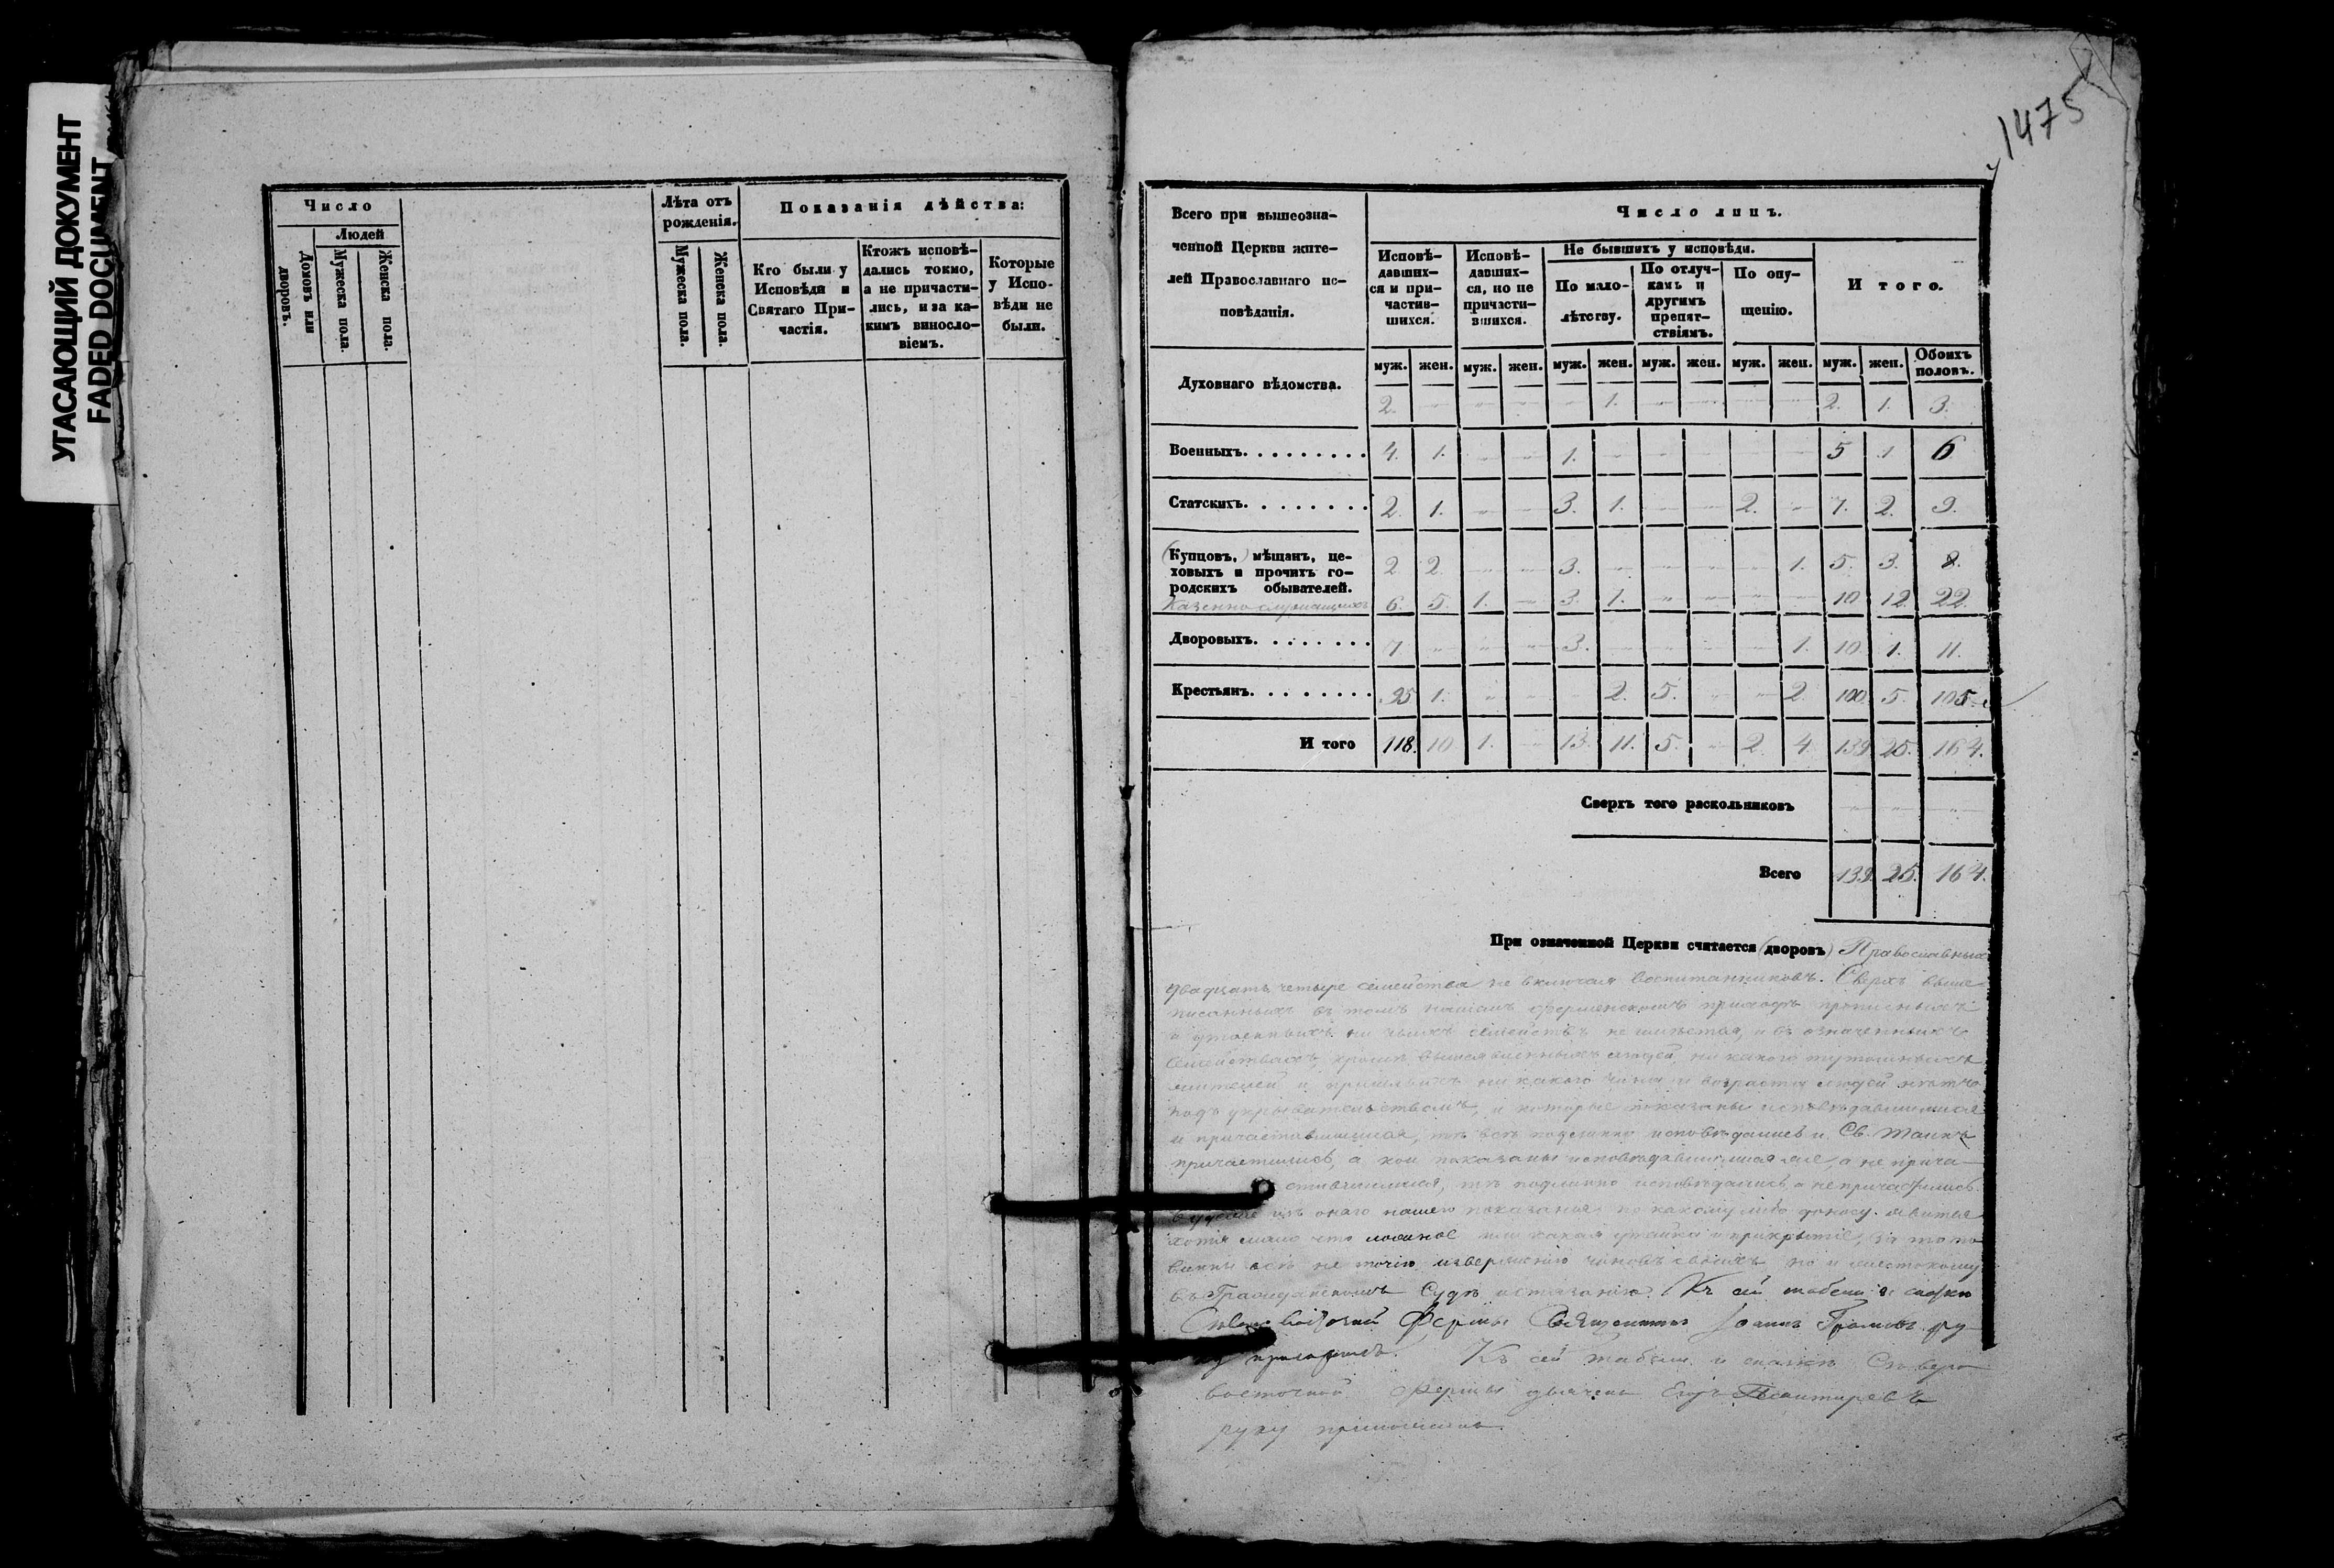 УГАСАЮЩИЙ ДОКУМЕНТ
FADED DOCUMENT
Число
Людей
Домовъ или дворовъ.
Мужеска пола.
Женска пола.
Лѣта отъ рожденія.
Мужеска пола.
Женска пола.
Показанія дѣйства:
Кто были у Исповѣди и Святаго Причастія.
Ктожъ исповѣдались токмо, а не причастились, и за какимъ винословіемъ.
Которые у Исповѣди не были.
1475
Всего при вышеозна-
ченной Церкви жите-
лей Православнаго ис-
повѣданія.
Число лицъ.
Исповѣ-
давших-
ся и при-
частив-
шихся.
Исповѣ-
давших-
ся, но не
причасти-
вшихся.
Не бывшихъ у исповѣди.
По мало-
лѣтству.
По отлуч-
камъ и
другимъ
препят-
ствіямъ.
По опу-
щенію.
И того.
муж. жен. муж. жен. муж. жен. муж. жен. муж. жен. муж. жен. Обоихъ половъ.
Духовнаго вѣдомства.
2. 1. 2. 1. 3.
Военныхъ. 4. 1. 1. 5 1 6
Статскихъ. 2. 1. 3. 1. 2. 7. 2. 9.
(Купцовъ,) мѣщанъ, це-
ховыхъ и прочихъ го-
родскихъ обывателей.
2 2 3. 1. 5. 3. 8.
Казенно служащихъ 6. 5 1. 3. 1. 10 12 22
Дворовыхъ. 7. 3. 1. 10. 1. 11.
Крестьянъ. 95 1. 2. 5. 2 100 5 105.
И того 118. 10 1. 13. 11. 5. 2 4. 139 25. 164.
Сверхъ того раскольниковъ
Всего 139. 25. 164.
При означенной Церкви считается (дворовъ) Православныхъ
двадцать четыре семейства не включая воспитанниковъ. Сверхъ выше
писанныхъ въ томъ нашемъ ферменскомъ приходѣ прописныхъ
и утаенныхъ ни чьихъ семействъ не имѣется, и въ означенныхъ
семействахъ, кромѣ вышеявленныхъ людей, ни какого тутошныхъ
жителей и пришлыхъ ни какого чина и возраста людей нѣтъ
подъ укрывательствомъ, и которые показаны исповѣдавшимися
и причастившимися, тѣ всѣ подлинно исповѣдались и Св. Таинъ
причастились, а кои показаны исповѣдавшимися же, а не прича-
стившимися, тѣ подлинно исповѣдались а не причастились.
изъ онаго нашего показанія по какому либо доносу явится
хотя мало что ложное или какая утайка и прикрытіе, за то то
винны всѣ не точію изверженію чиновъ своихъ но и жестокому
въ Гражданскомъ Судѣ истязанію. Къ сей табели и сказкѣ
Сѣверо восточной Фермы Священникъ Іоаннъ ру-
ку приложилъ. Къ сей табели и сказкѣ Сѣверо
восточной Фермы дьячекъ Егоръ
руку приложилъ.